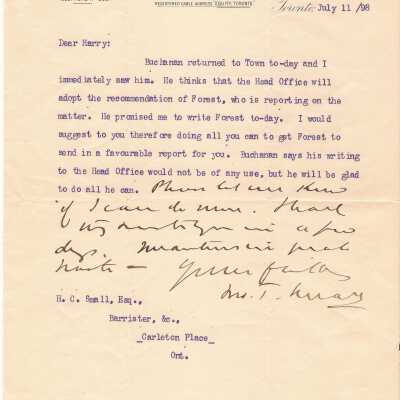 REGISTERED CABLE ADDRESS
Toronto July 11 /98
Dear Harry:
Buchanan returned to Town to-day and I
immediately saw him. He thinks that the Head Office will
adopt the recommendation of Forest, who is reporting on the
matter. He promised me to write Forest to-day. I would
suggest to you therefore doing all you can to get Forest to
send in a favourable report for you. Buchanan says his writing
to the Head Office would not be of any use, but he will be glad
to do all he can. Please let me know
if I can do more. Shall
in a few
days. Meantime in great
haste —
H. C. Small, Esq.,
Barrister, &c.,
Carleton Place
Ont.